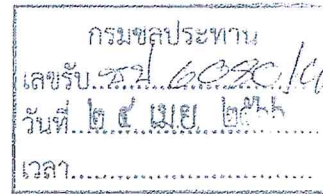 กรมชลประทาน
เลขรับ ชป 6080
วันที่ ๒๔ เม.ย. ๒๕๖๖
เวลา